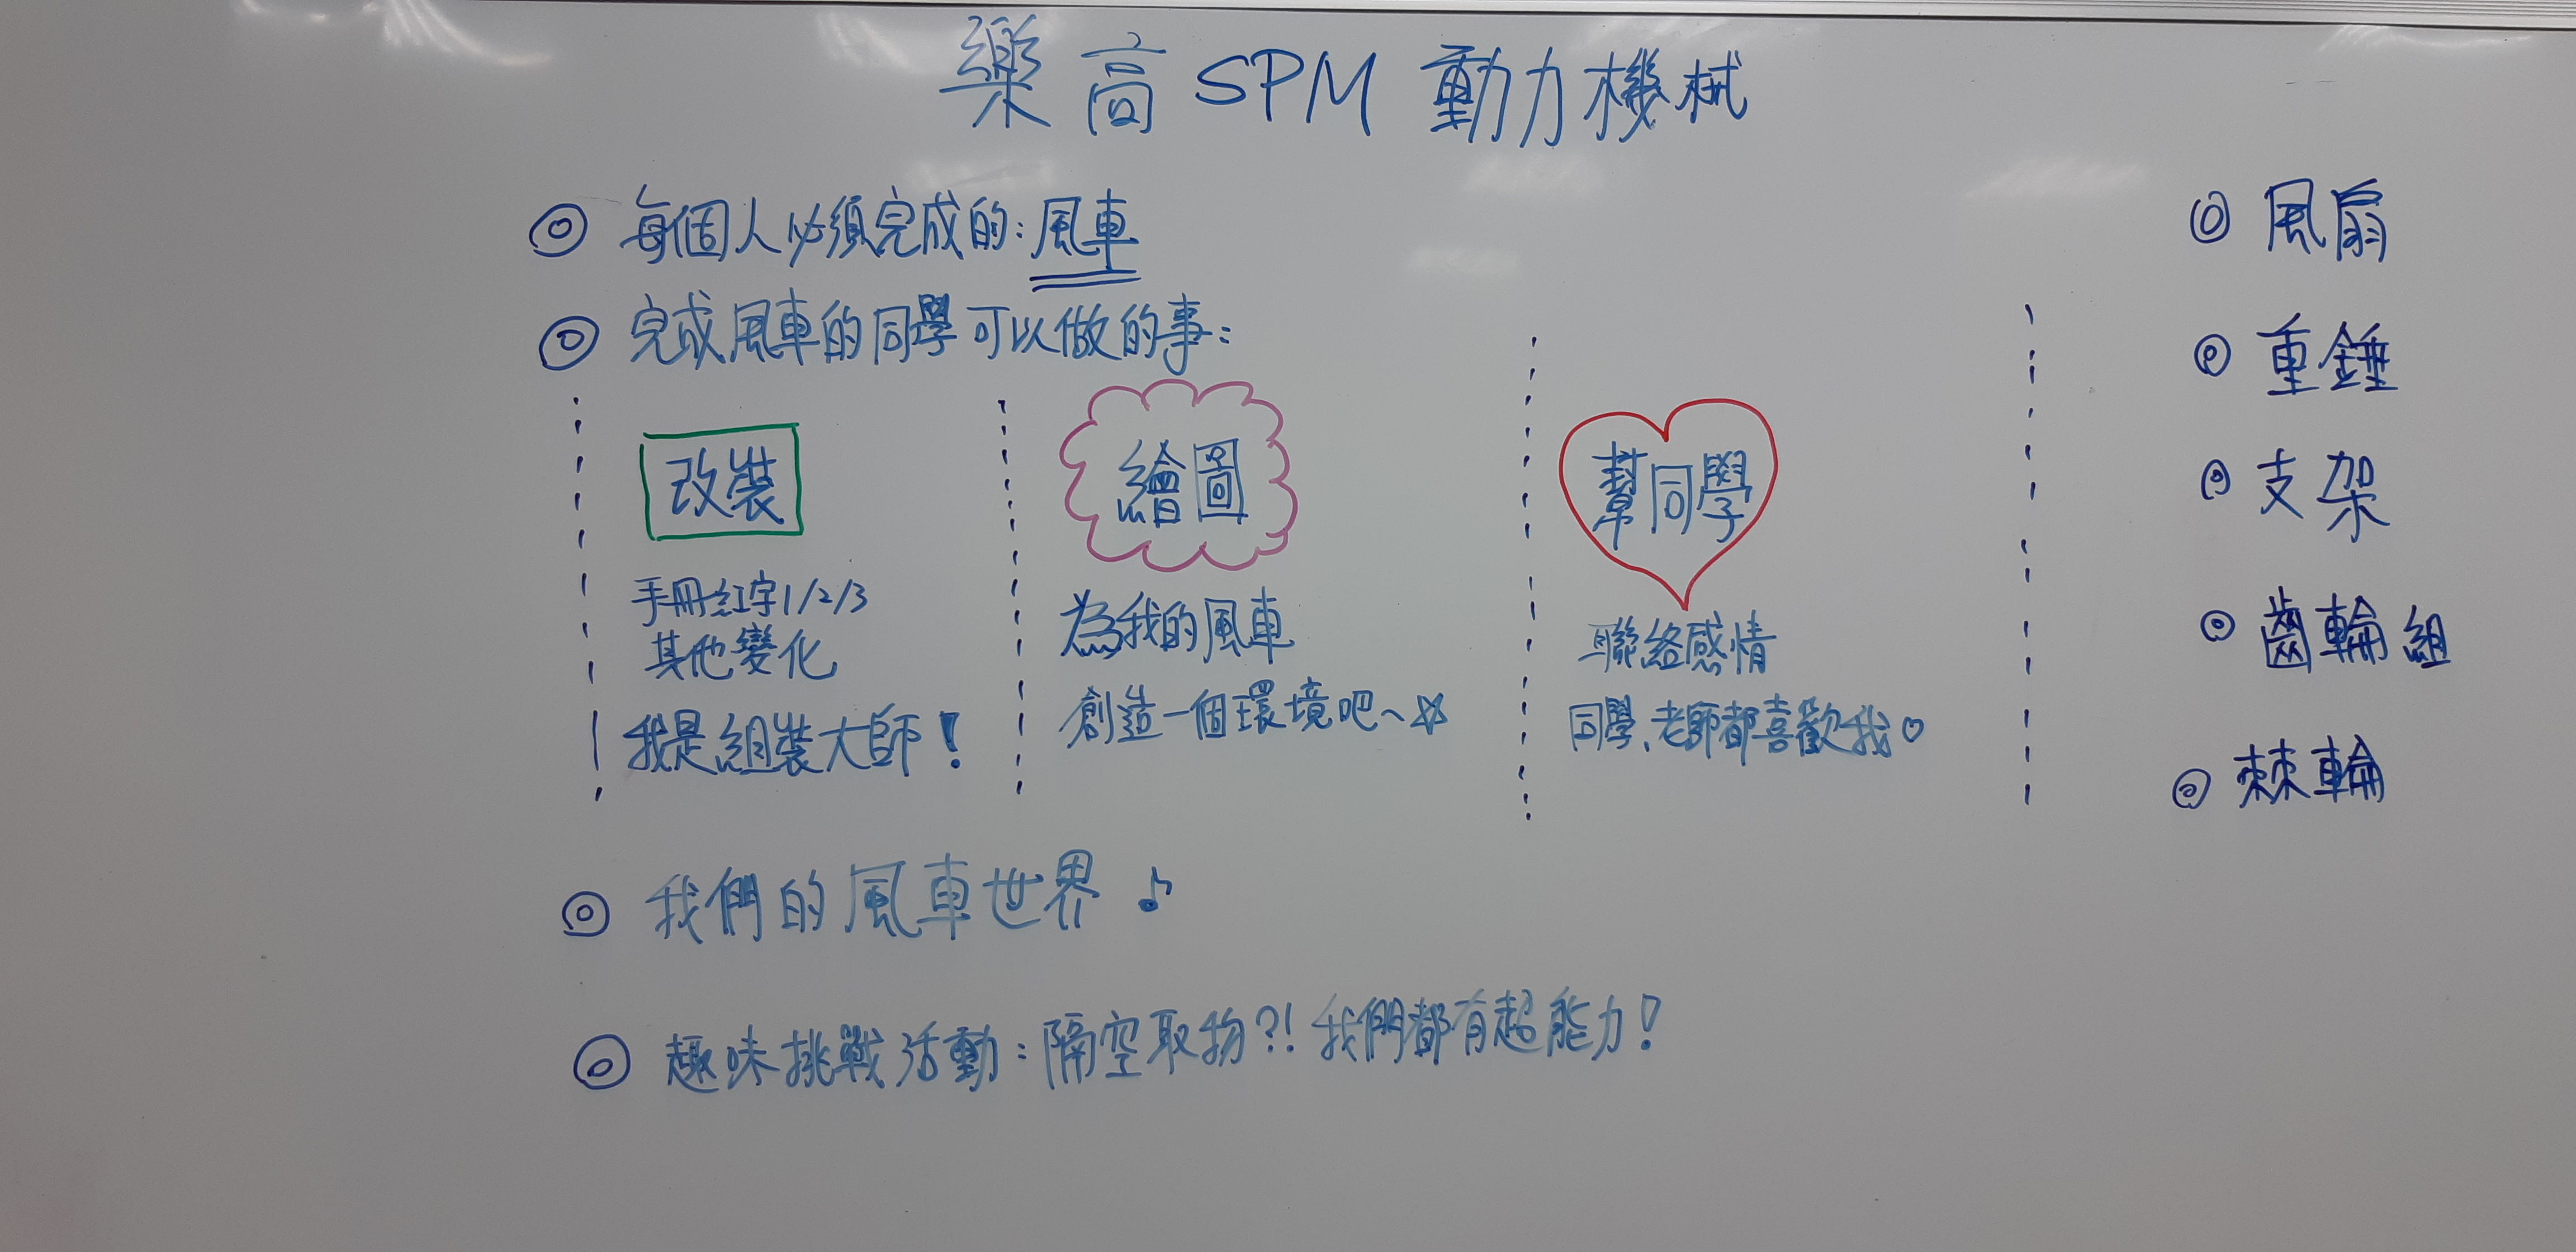 樂高 SPM 動力機械
◎ 每個人必須完成的：風車
◎ 完成風車的同學可以做的事：
改裝
手冊紅字1/2/3
其他變化
我是組裝大師！
繪圖
為我的風車
創造一個環境吧~☆
幫同學
聯絡感情
同學、老師都喜歡我♡
◎ 我們的風車世界 ♪
◎ 趣味挑戰活動：隔空取物?! 我們都有超能力！
◎ 風扇
◎ 重錘
◎ 支架
◎ 齒輪組
◎ 棘輪